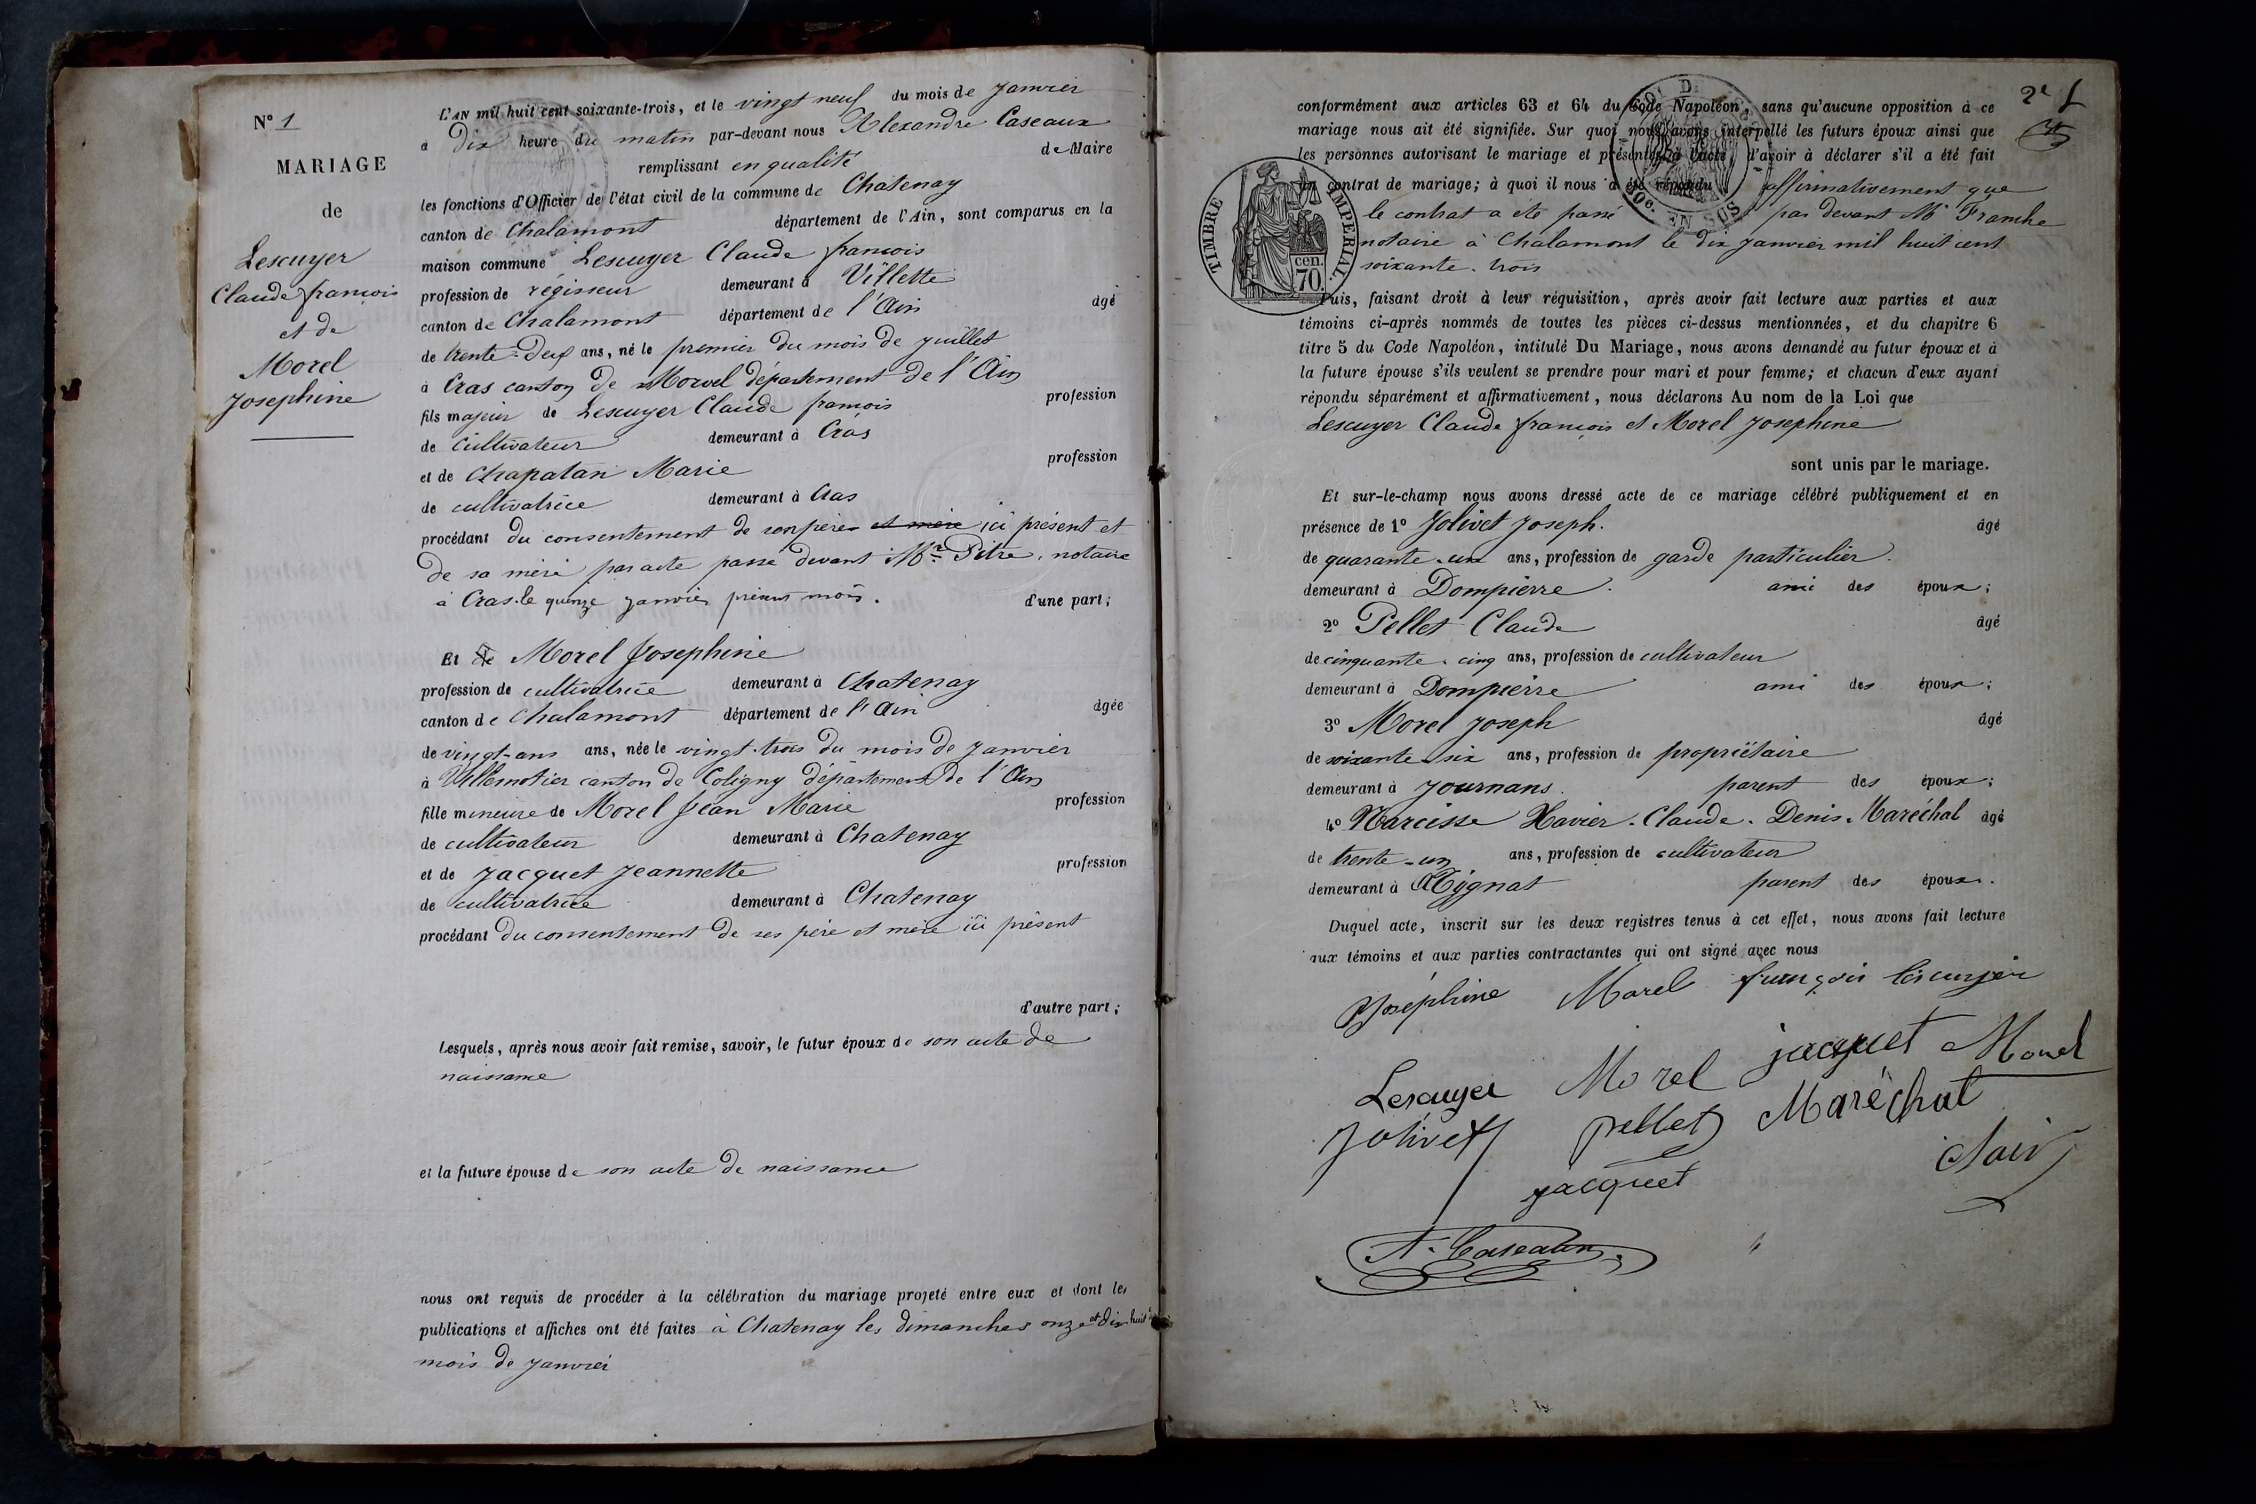 N° 1
MARIAGE
de
Lescuyer
Claude françois
et de
Morel
Josephine
L'AN mil huit cent soixante-trois, et le vingt neuf du mois de Janvier
à Dix heure du matin par-devant nous Alexandre Caseaux
remplissant en qualité de Maire
les fonctions d'Officier de l'état civil de la commune de Chatenay
canton de Chalamont département de l'Ain, sont comparus en la
maison commune Lescuyer Claude françois
profession de régisseur demeurant à Villette
canton de Chalamont département de l'Ain âgé
de trente-Deux ans, né le premier du mois de Juillet
à Cras canton de Morvel département de l'Ain
fils majeur de Lescuyer Claude françois profession
de cultivateur demeurant à Cras
et de Chapatan Marie profession
de cultivatrice demeurant à Cras
procédant du consentement de son père et mère ici présent et
de sa mère par acte passé devant Mr. Pitre, notaire
à Cras le quinze Janvier présent mois. d'une part;
Et de Morel Josephine
profession de cultivatrice demeurant à Chatenay
canton de Chalamont département de l'Ain âgée
de vingt-ans ans, née le vingt-trois du mois de Janvier
à Villemotier canton de Coligny département de l'Ain
fille mineure de Morel Jean Marie profession
de cultivateur demeurant à Chatenay
et de Jacquet Jeannette profession
de cultivatrice demeurant à Chatenay
procédant du consentement de ses père et mère ici présent
d'autre part;
Lesquels, après nous avoir fait remise, savoir, le futur époux de son acte de
naissance
et la future épouse de son acte de naissance
nous ont requis de procéder à la célébration du mariage projeté entre eux et dont les
publications et affiches ont été faites à Chatenay les dimanches onze et dix huit
mois de Janvier
2e 1
conformément aux articles 63 et 64 du Code Napoléon, sans qu'aucune opposition à ce
mariage nous ait été signifiée. Sur quoi nous avons interpellé les futurs époux ainsi que
les personnes autorisant le mariage et présentes à l'acte, d'avoir à déclarer s'il a été fait
un contrat de mariage; à quoi il nous a été répondu affirmativement que
le contrat a été passé par devant Me Franche
notaire à Chalamont le dix Janvier mil huit cent
soixante-trois
TIMBRE IMPERIAL
cen.
70.
50c. EN SUS
Puis, faisant droit à leur réquisition, après avoir fait lecture aux parties et aux
témoins ci-après nommés de toutes les pièces ci-dessus mentionnées, et du chapitre 6
titre 5 du Code Napoléon, intitulé Du Mariage, nous avons demandé au futur époux et à
la future épouse s'ils veulent se prendre pour mari et pour femme; et chacun d'eux ayant
répondu séparément et affirmativement, nous déclarons Au nom de la Loi que
Lescuyer Claude françois et Morel Josephine
sont unis par le mariage.
Et sur-le-champ nous avons dressé acte de ce mariage célébré publiquement et en
présence de 1° Jolivet Joseph. âgé
de quarante-un ans, profession de garde particulier.
demeurant à Dompierre. ami des époux;
2° Pellet Claude âgé
de cinquante-cinq ans, profession de cultivateur
demeurant à Dompierre ami des époux;
3° Morel Joseph âgé
de soixante-six ans, profession de propriétaire
demeurant à Journans. parent des époux;
4° Narcisse Xavier. Claude. Denis. Maréchal âgé
de trente-un ans, profession de cultivateur
demeurant à Attignat parent des époux.
Duquel acte, inscrit sur les deux registres tenus à cet effet, nous avons fait lecture
aux témoins et aux parties contractantes qui ont signé avec nous
Joséphine Morel françois lescuyer
Lescuyer Morel jacquet Morel
Jolivet pellet Maréchal
jacquet
A. Caseaux